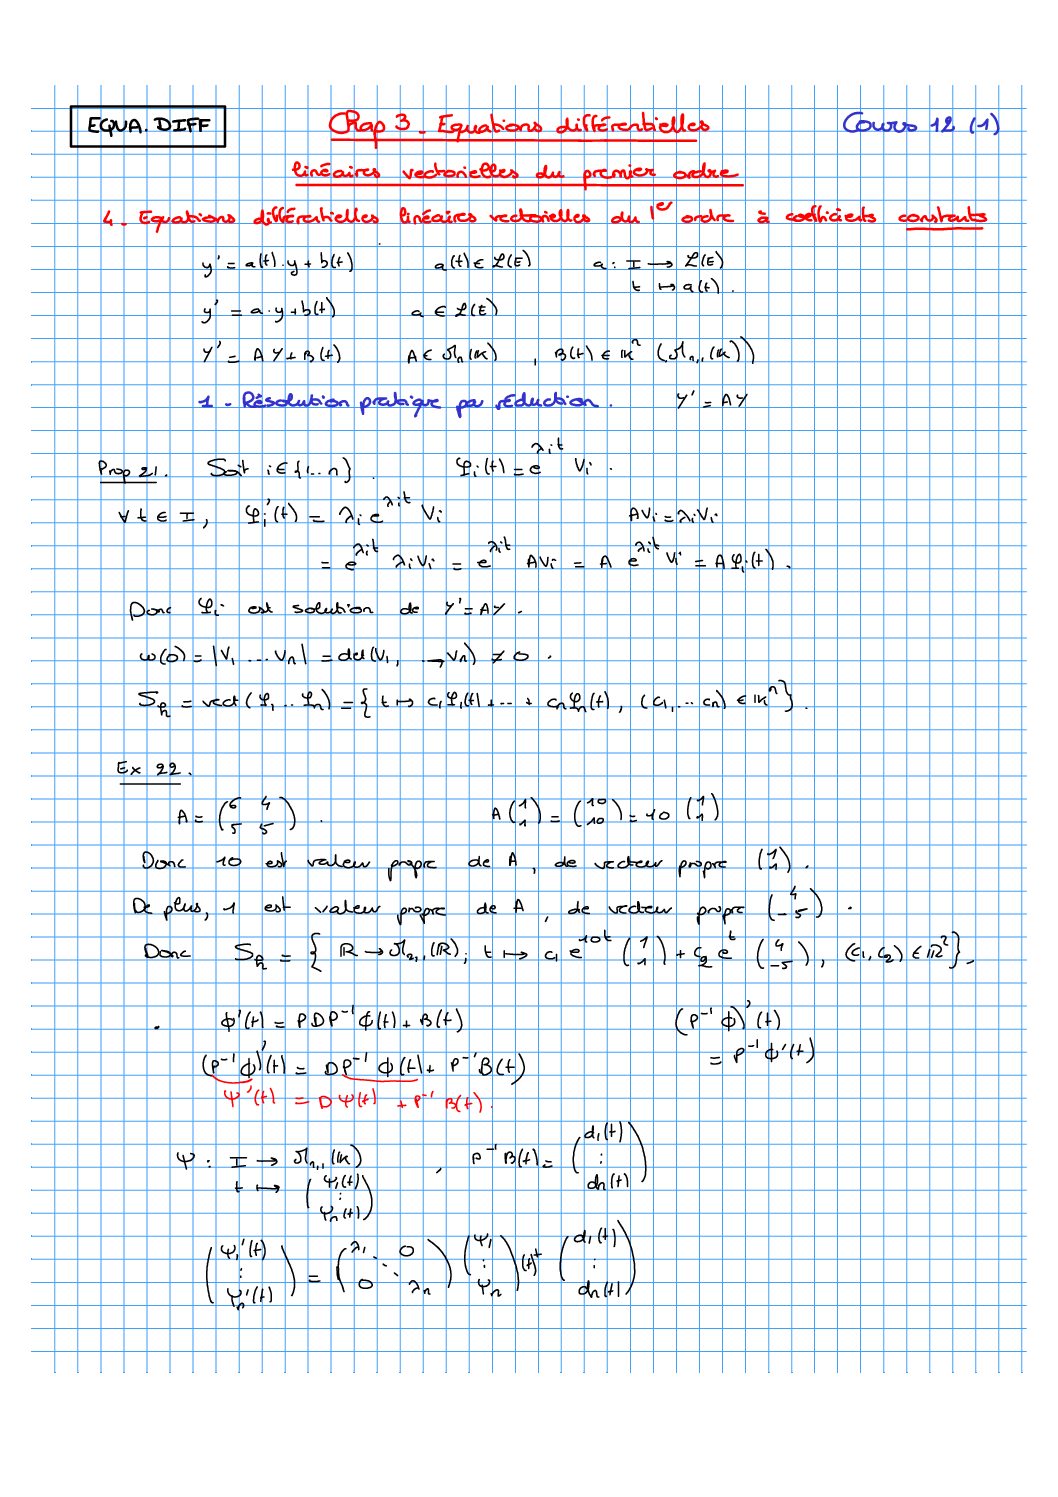 EQUA. DIFF
Chap 3 - Equations différentielles
Cours 12 (1)
linéaires vectorielles du premier ordre
4 - Equations différentielles linéaires vectorielles du 1er ordre à coefficients constants
y' = a(t).y + b(t) a(t) ∈ ℒ(E) a : I → ℒ(E)
t ↦ a(t).
y' = a.y + b(t) a ∈ ℒ(E)
Y' = AY + B(t) A ∈ ℳn(𝕂) , B(t) ∈ 𝕂ⁿ (ℳn,1(𝕂))
1 - Résolution pratique par réduction. Y' = AY
Prop 21. Soit i ∈ {1...n} φi(t) = e^{λi t} Vi.
∀ t ∈ I, φi'(t) = λi e^{λi t} Vi AVi = λiVi
= e^{λi t} λiVi = e^{λi t} AVi = A e^{λi t} Vi = Aφi(t).
Donc φi est solution de Y' = AY.
w(0) = |V1 ... Vn| = det(V1, ..., Vn) ≠ 0.
Sh = vect(φ1 .. φn) = { t ↦ c1φ1(t) + ... + cnφn(t), (c1, ... cn) ∈ 𝕂ⁿ}.
Ex 22.
A = (6 4 ; 5 5). A (1 ; 1) = (10 ; 10) = 10 (1 ; 1)
Donc 10 est valeur propre de A, de vecteur propre (1 ; 1).
De plus, 1 est valeur propre de A, de vecteur propre (4 ; -5).
Donc Sh = { ℝ → ℳ2,1(ℝ); t ↦ c1 e^{10t} (1 ; 1) + c2 e^t (4 ; -5), (c1, c2) ∈ ℝ²}.
. ϕ'(t) = PDP⁻¹ϕ(t) + B(t) (P⁻¹ϕ)'(t)
= P⁻¹ϕ'(t)
(P⁻¹ϕ)'(t) = DP⁻¹ϕ(t) + P⁻¹B(t)
ψ'(t) = Dψ(t) + P⁻¹B(t).
ψ : I → ℳn,1(𝕂) , P⁻¹B(t) = (d1(t) ; ⋮ ; dn(t))
t ↦ (ψ1(t) ; ⋮ ; ψn(t))
(ψ1'(t) ; ⋮ ; ψn'(t)) = (λ1 0 ; ⋱ ; 0 λn) (ψ1 ; ⋮ ; ψn)(t) + (d1(t) ; ⋮ ; dn(t))